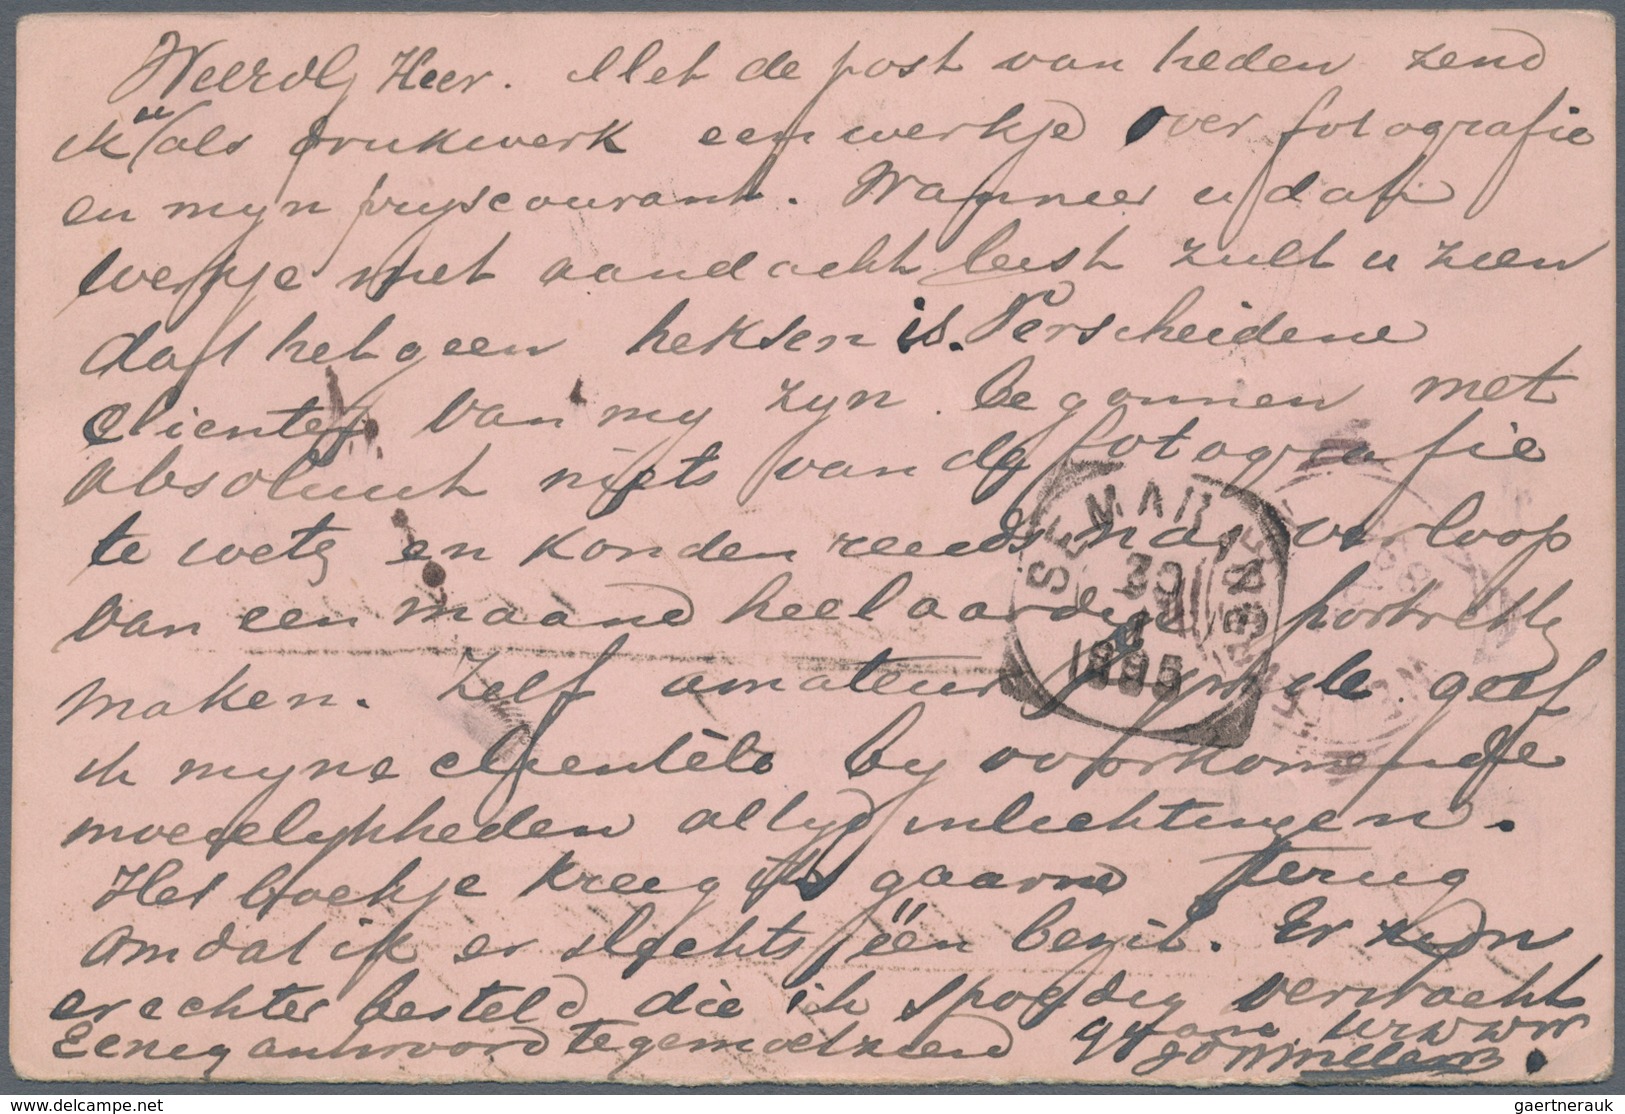 Weledl Heer. Met de post van heden zend
ik u als drukwerk een werkje over fotografie
en myn pryscourant. Wanneer u dat
werkje met aandacht leest zult u zien
dat het geen heksen is. Verscheidene
clienten van my zyn begonnen met
absoluut niets van de fotografie
te weten en konden reeds na verloop
van een maand heel aardige portretten
maken. Zelf amateur zynde geef
ik myne clientèle by voorkomende
moeielykheden altyd inlichtingen.
Het boekje kreeg ik gaarne terug
omdat ik er slechts één bezit. Er zyn
er echter besteld die ik spoedig verwacht
Eenig antwoord tegemoetziend
SEMARANG
30
12
1895
gaertnerauk | delcampe.net